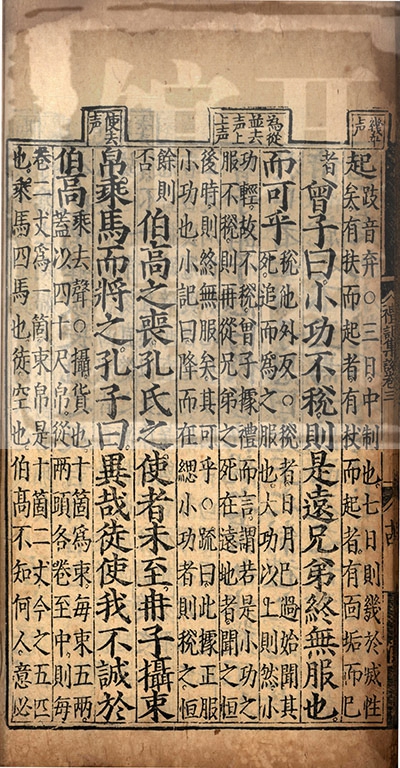 幾平
上声
為從
並去
声上
上声
使去
声
起跂音弃○三日中制也七日則幾於滅性
矣有扶而起者有杖而起者有面垢而已
者曾子曰小功不稅則是遠兄弟終無服也
而可乎稅他外反○稅者日月已過始聞其
死追而為之服也大功以上則然小
功輕故不稅曾子據禮而言謂若是小功之
服不稅則再從兄弟之死在遠地者聞之恒
後時則終無服矣其可乎○疏曰此據正服
小功也小記曰降而在緦小功者則稅之其
餘則
否
伯高之喪孔氏之使者未至冉子攝束
帛乘馬而將之孔子曰異哉徒使我不誠於
伯高乘去聲○攝貸也十箇為束每束五兩
蓋以四十尺帛從兩頭各卷至中則每
卷二丈為一箇束帛是十箇二丈今之五匹
也乘馬四馬也徒空也伯高不知何人意必